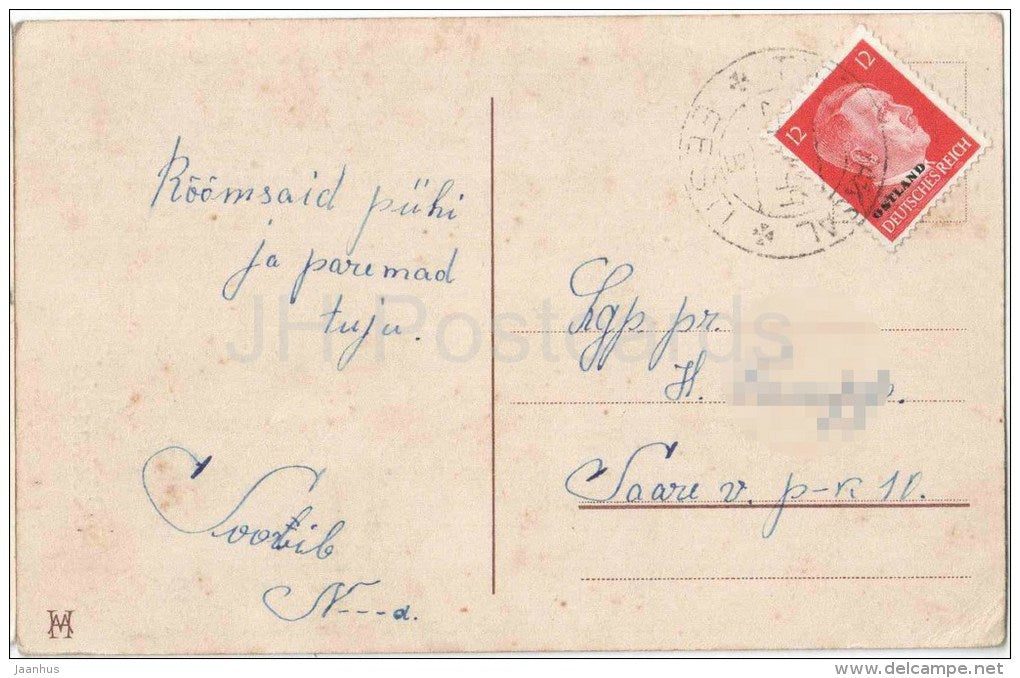 Rõõmsaid pühi
ja paremad
tuju.
Soovib
N---a.
12
12
OSTLAND
DEUTSCHES REICH
EESTI
Lgp. pr.
H.
Saare v. p-k 10.
JH Postcards
jaanhus
delcampe.net